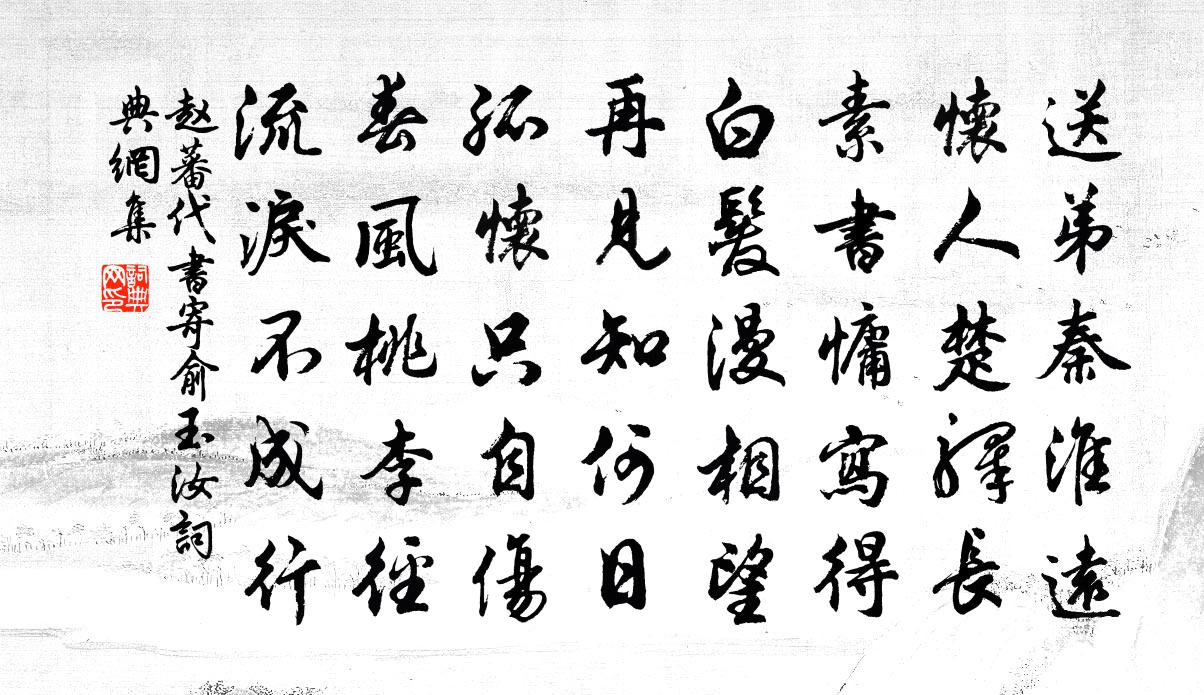 送弟秦淮遠
懷人楚驛長
素書慵寫得
白髮漫相望
再見知何日
孤懷只自傷
春風桃李徑
流淚不成行
赵蕃代書寄俞玉汝詞
典網集
詞典
网印